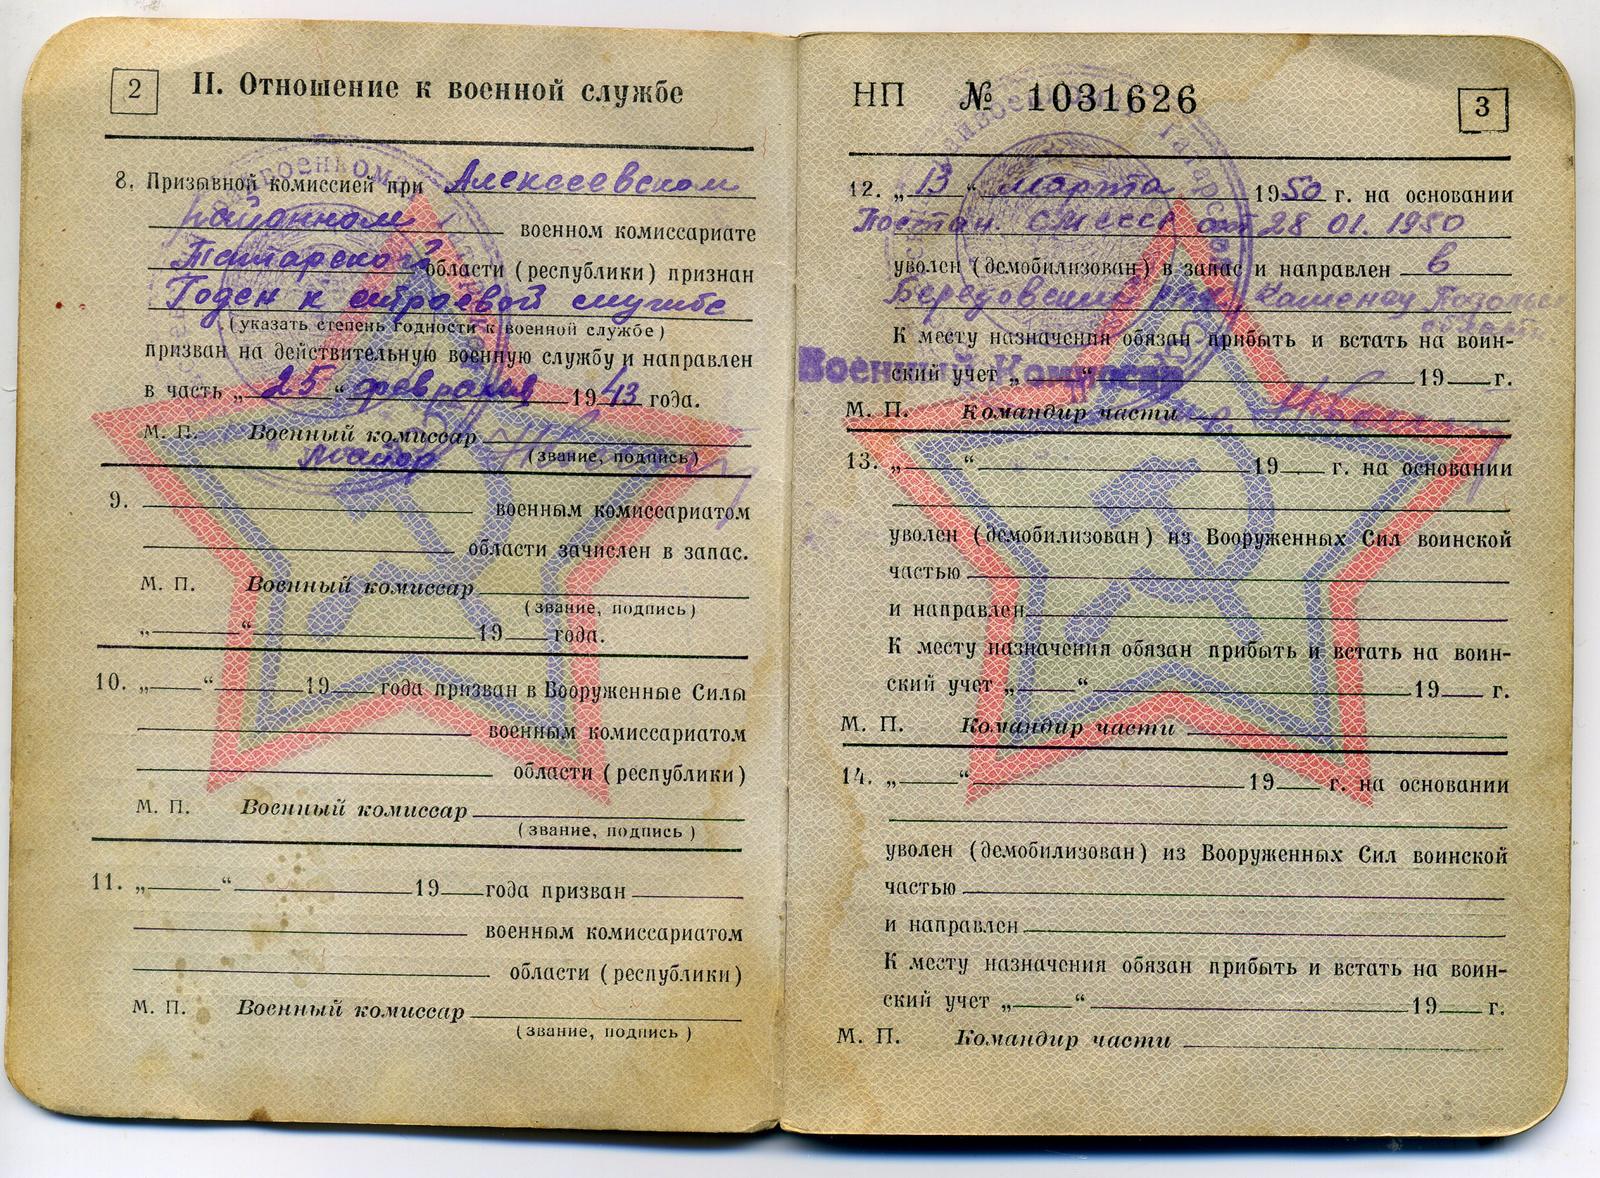 2
II. Отношение к военной службе
8. Призывной комиссией при Алексеевском
районном военном комиссариате
Татарской области (республики) признан
Годен к строевой службе
(указать степень годности к военной службе)
призван на действительную военную службу и направлен
в часть „25“ февраля 1943 года.
М. П. Военный комиссар
майор (звание, подпись)
9.
военным комиссариатом
области зачислен в запас.
М. П. Военный комиссар
(звание, подпись)
„ “ 19 года.
10. „ “ 19 года призван в Вооруженные Силы
военным комиссариатом
области (республики)
М. П. Военный комиссар
(звание, подпись)
11. „ “ 19 года призван
военным комиссариатом
области (республики)
М. П. Военный комиссар
(звание, подпись)
НП № 1031626
3
12. „13“ марта 1950 г. на основании
Постан. СМ СССР от 28 01. 1950
уволен (демобилизован) в запас и направлен в
Каменец Подольс
области
К месту назначения обязан прибыть и встать на воин-
ский учет „ “ 19 г.
Военный Комиссар
М. П. Командир части
13. „ “ 19 г. на основании
уволен (демобилизован) из Вооруженных Сил воинской
частью
и направлен
К месту назначения обязан прибыть и встать на воин-
ский учет „ “ 19 г.
М. П. Командир части
14. „ “ 19 г. на основании
уволен (демобилизован) из Вооруженных Сил воинской
частью
и направлен
К месту назначения обязан прибыть и встать на воин-
ский учет „ “ 19 г.
М. П. Командир части